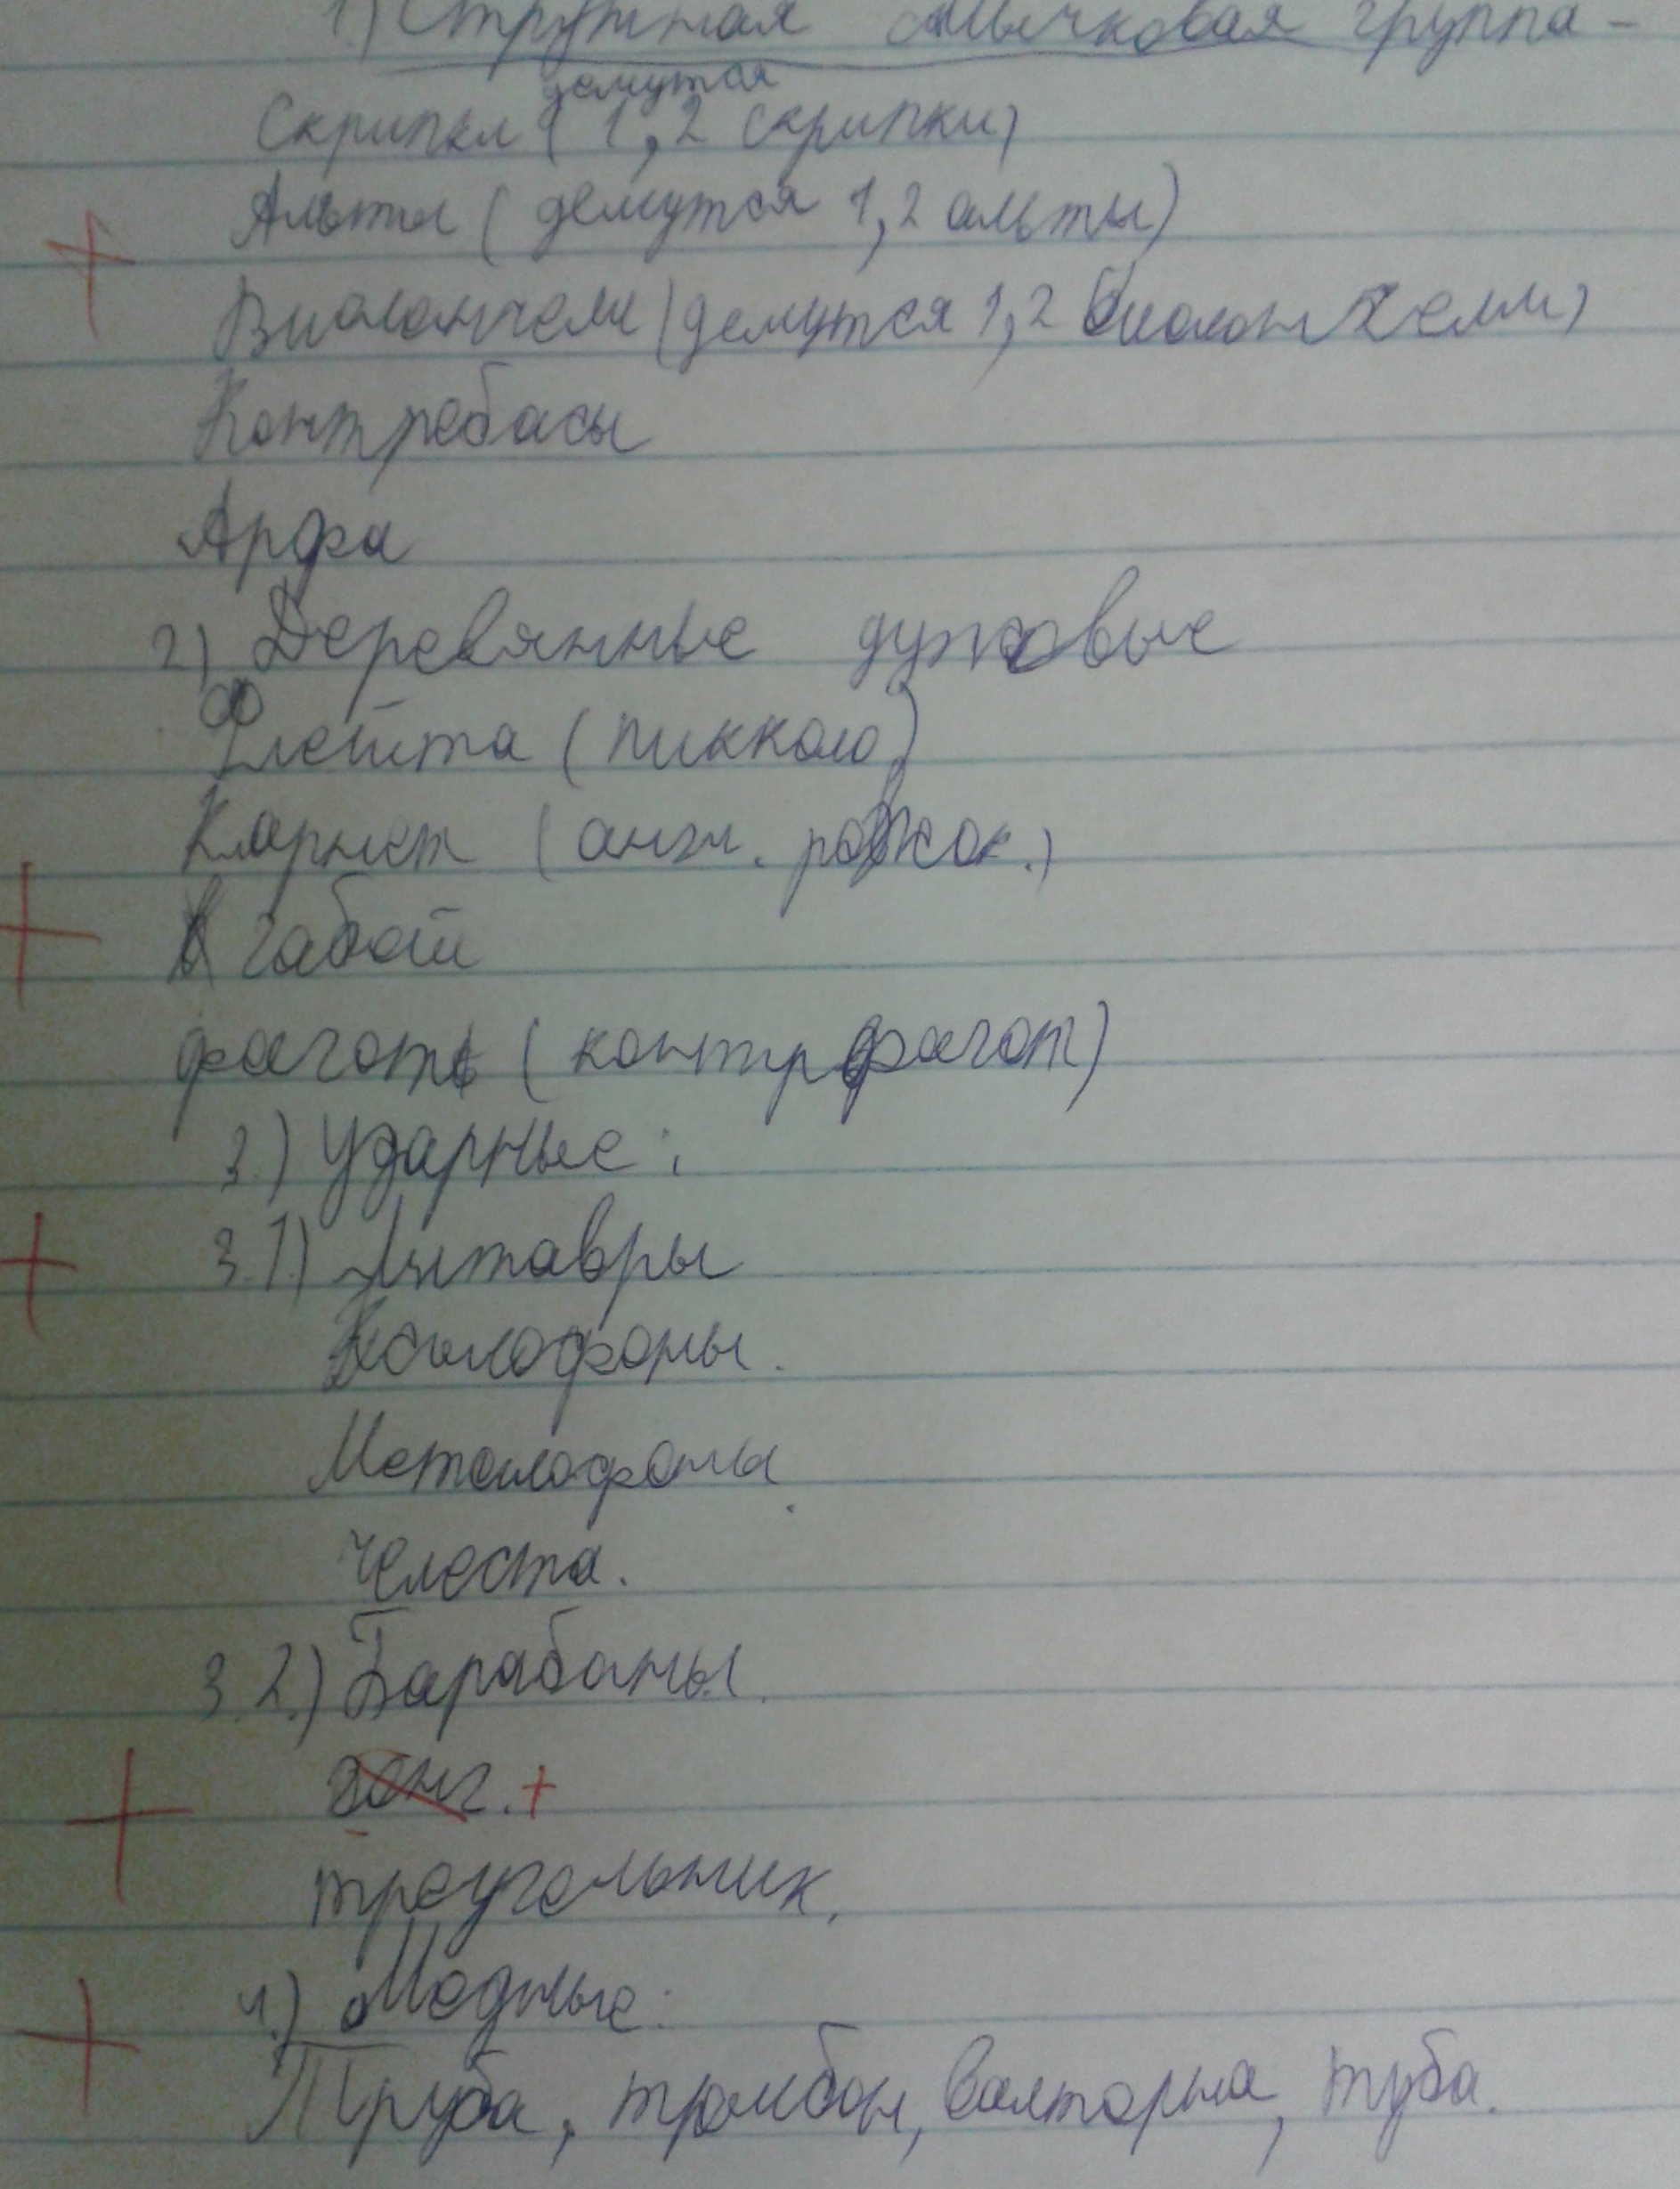 1) Струнная смычковая группа -
делятся
Скрипки ( 1, 2 скрипки)
Альты ( делятся 1, 2 альты)
Виолончели (делятся 1, 2 виолончели)
Контребасы
Арфа
2) Деревянные духовые
Флейта (пикколо)
Кларнет (англ. рожок.)
Габой
фагот (контрфагот)
3.) Ударные:
3.1) Литавры
Ксилофоны.
Металофоны.
Челеста.
3.2.) Барабаны.
гонг. +
треугольник.
4.) Медные:
Труба, тромбон, валторна, туба.